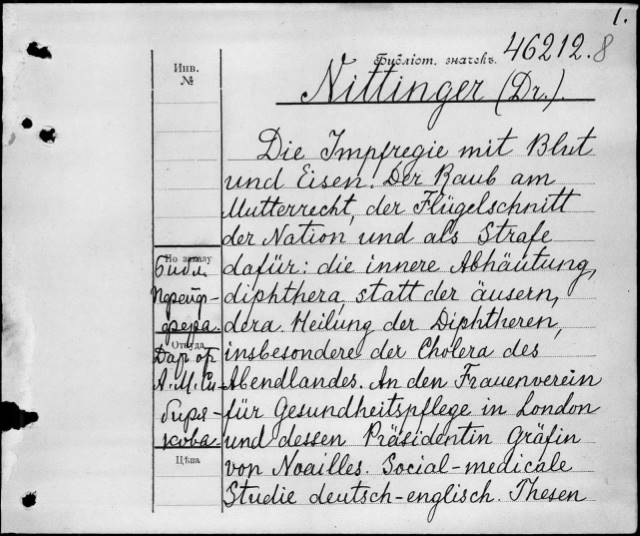 1.
Библіот. значекъ. 46212.8
Инв.
№
Nittinger (Dr.).
Die Impfregie mit Blut
und Eisen. Der Raub am
Mutterrecht, der Flügelschnitt
der Nation und als Strafe
По заказу
Библ.
Пфейф-
фера.
dafür: die innere Abhäutung,
diphthera, statt der äusern,
dera. Heilung der Diphtheren,
Откуда
Дар от
А. М. Си-
биря-
кова
insbesondere der Cholera des
Abendlandes. An den Frauenverein
für Gesundheitspflege in London
und dessen Präsidentin Gräfin
Цѣна
von Noailles. Social-medicale
Studie deutsch-englisch. Thesen